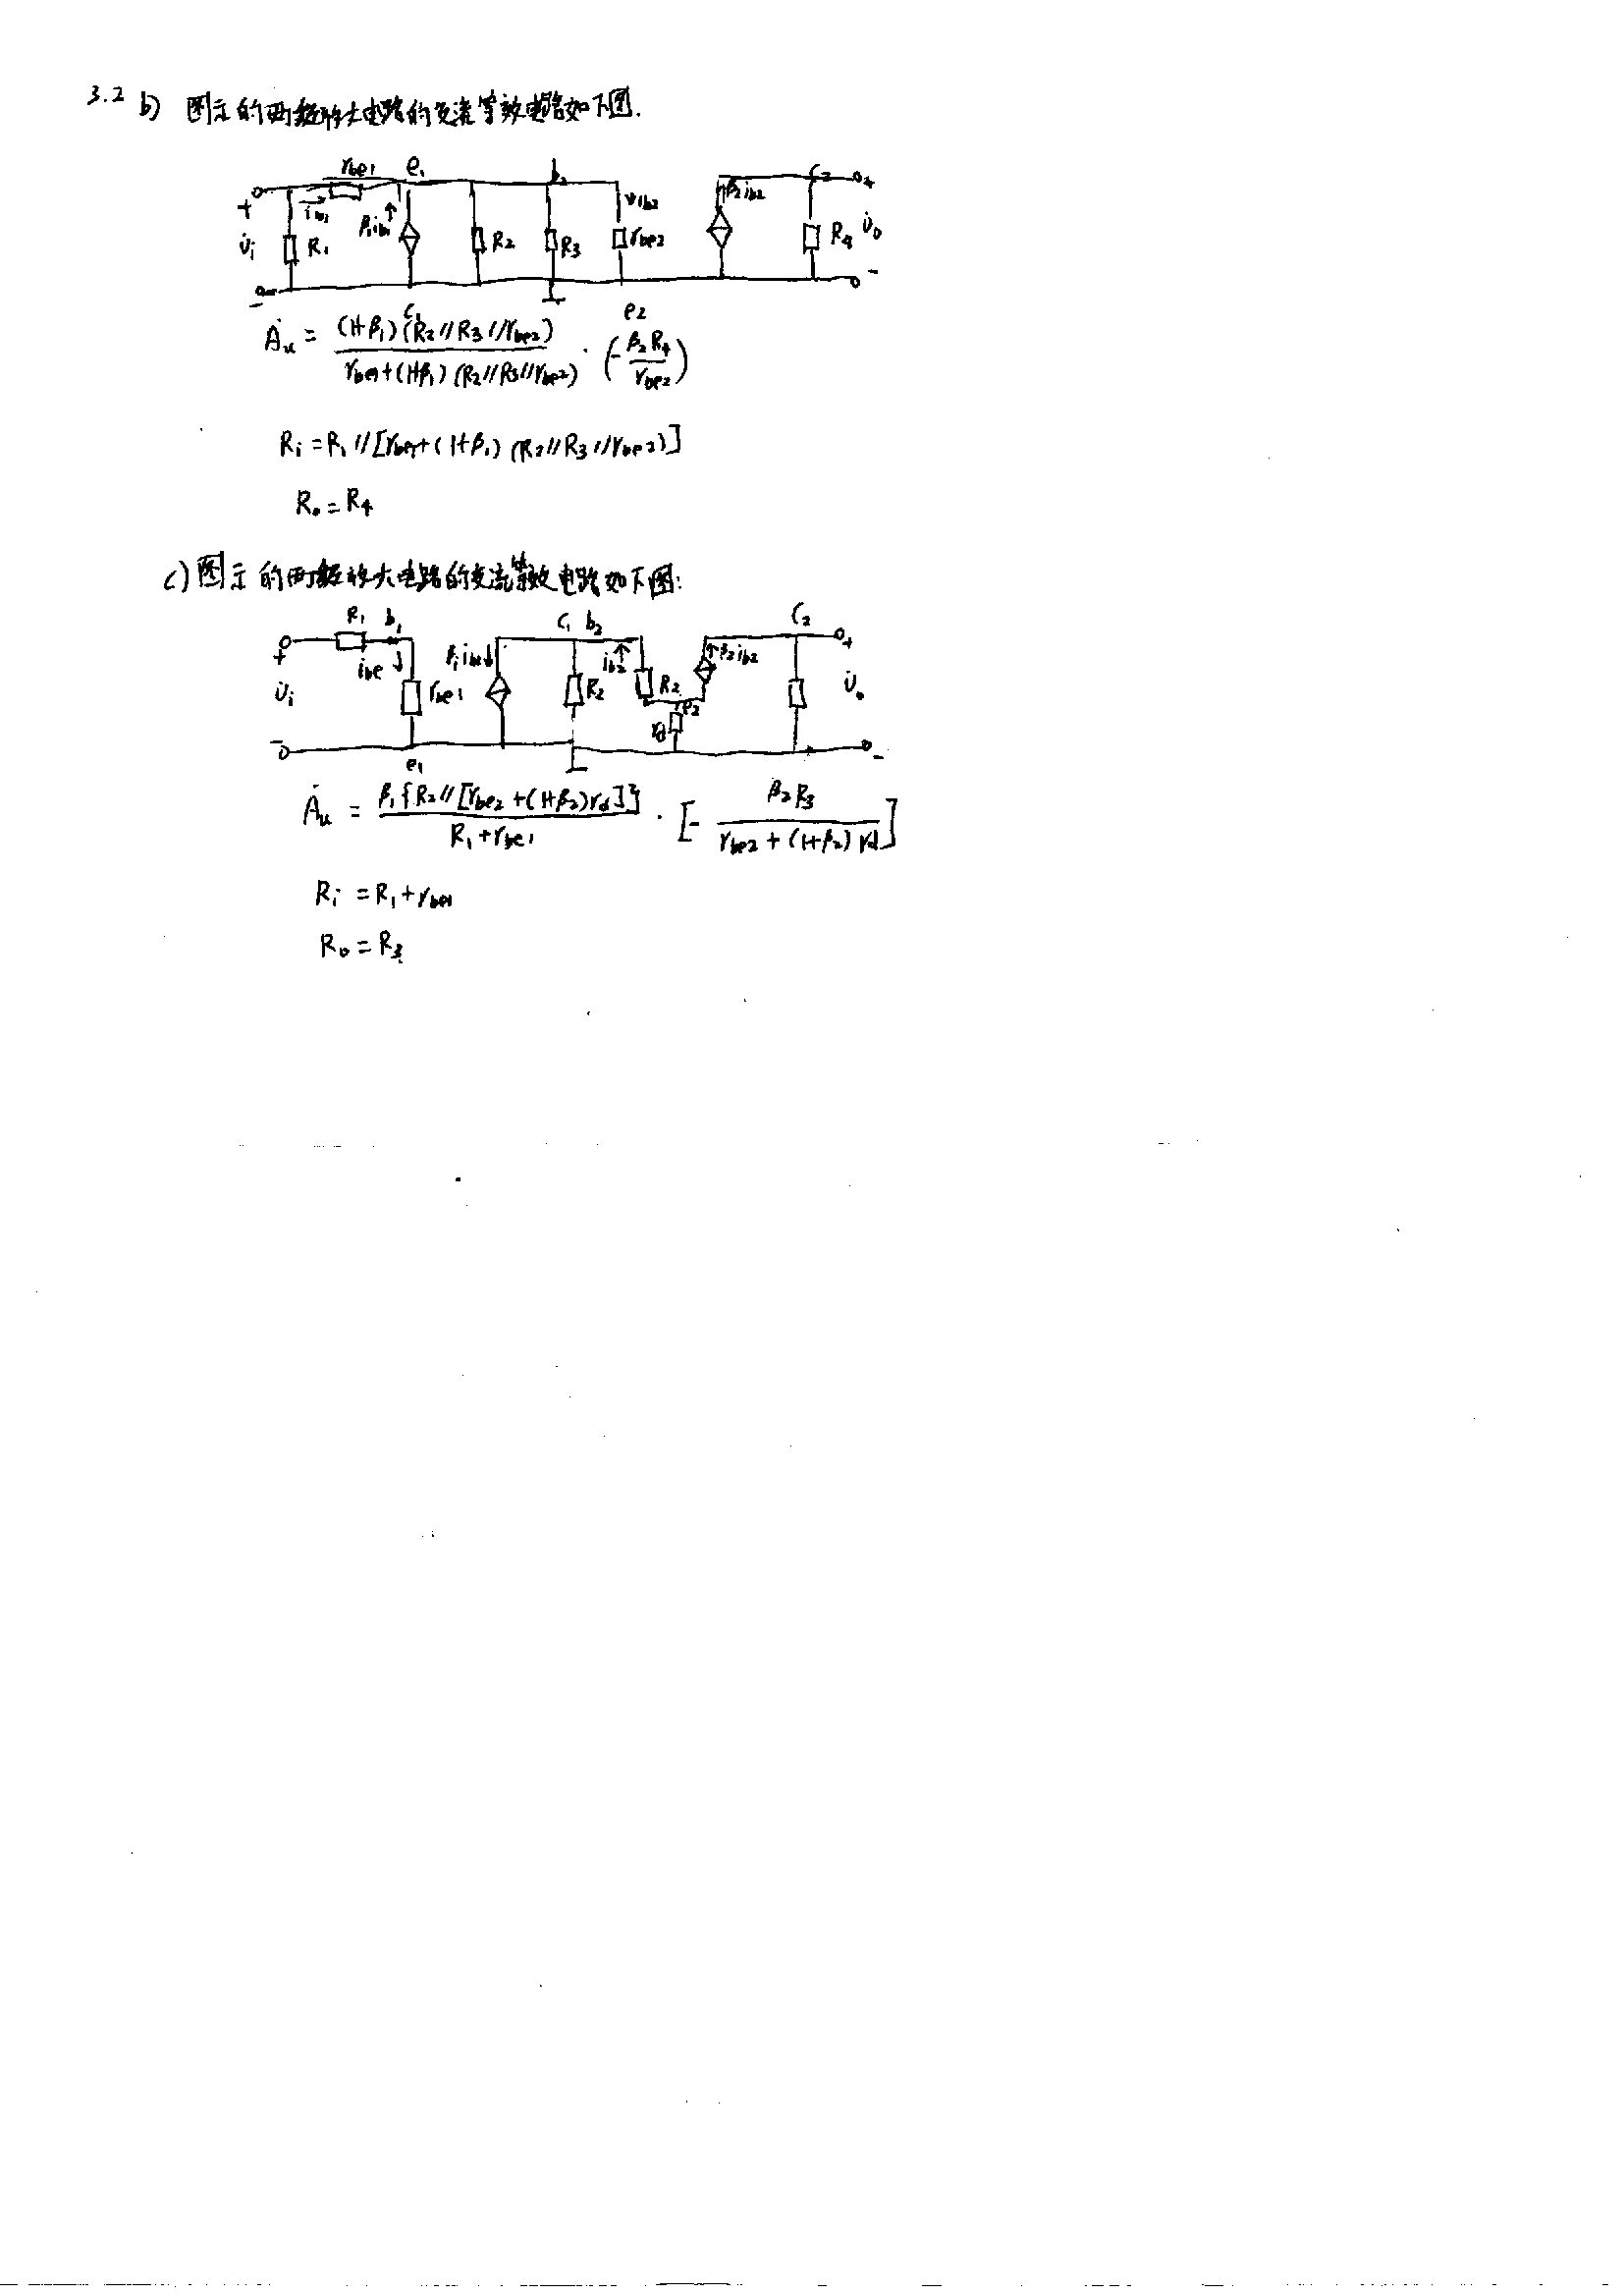 3.2 b) 图示的两级放大电路的交流等效电路如下图.
rbe1 e1 b2 C2
+ ib1 β1ib1 ib2 β2ib2 +
U̇i R1 R2 R3 rbe2 R4 U̇o
- -
c1 e2
Ȧu = (1+β1)(R2//R3//rbe2) / rbe1+(1+β1)(R2//R3//rbe2) · (- β2R4 / rbe2)
Ri = R1//[rbe1+(1+β1)(R2//R3//rbe2)]
Ro = R4
c) 图示的两级放大电路的交流等效电路如下图:
R1 b1 C1 b2 C2
+ ibe β1ibe ib2 β2ib2 +
U̇i rbe1 R2 R2 U̇o
e2
rd
- -
e1
Ȧu = β1{R2//[rbe2+(1+β2)rd]} / R1+rbe1 · [- β2R3 / rbe2+(1+β2)rd]
Ri = R1+rbe1
Ro = R3